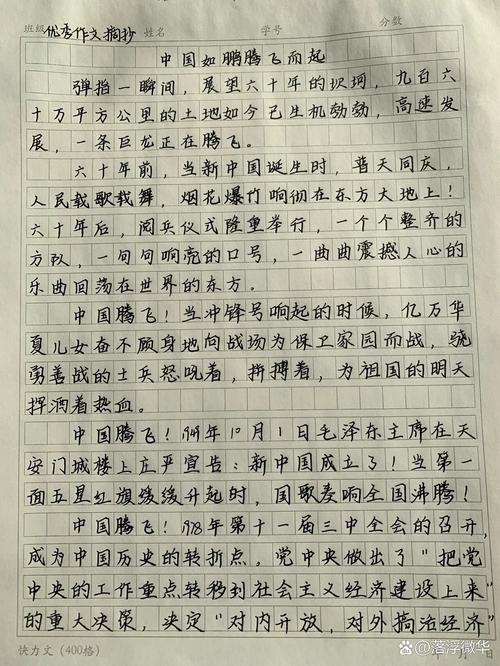 班级 优秀作文摘抄 姓名 学号 分数
中国如鹏腾飞而起
弹指一瞬间，展望六十年的坎坷，九百六
十万平方公里的土地如今已生机勃勃，高速发
展，一条巨龙正在腾飞。
六十年前，当新中国诞生时，普天同庆，
人民载歌载舞，烟花爆竹响彻在东方大地上！
六十年后，阅兵仪式隆重举行，一个个整齐的
方队，一句句响亮的口号，一曲曲震撼人心的
乐曲回荡在世界的东方。
中国腾飞！当冲锋号响起的时候，亿万华
夏儿女奋不顾身地向战场为保卫家园而战，骁
勇善战的士兵怒吼着，拼搏着，为祖国的明天
挥洒着热血。
中国腾飞！1949年10月1日毛泽东主席在天
安门城楼上庄严宣告：新中国成立了！当第一
面五星红旗缓缓升起时，国歌奏响全国沸腾！
中国腾飞！1978年第十一届三中全会的召开，
成为中国历史的转折点。党中央做出了"把党
中央的工作重点转移到社会主义经济建设上来"
的重大决策，决定"对内开放，对外搞活经济"
快力文（400格） 年 月 日
@落浮微华